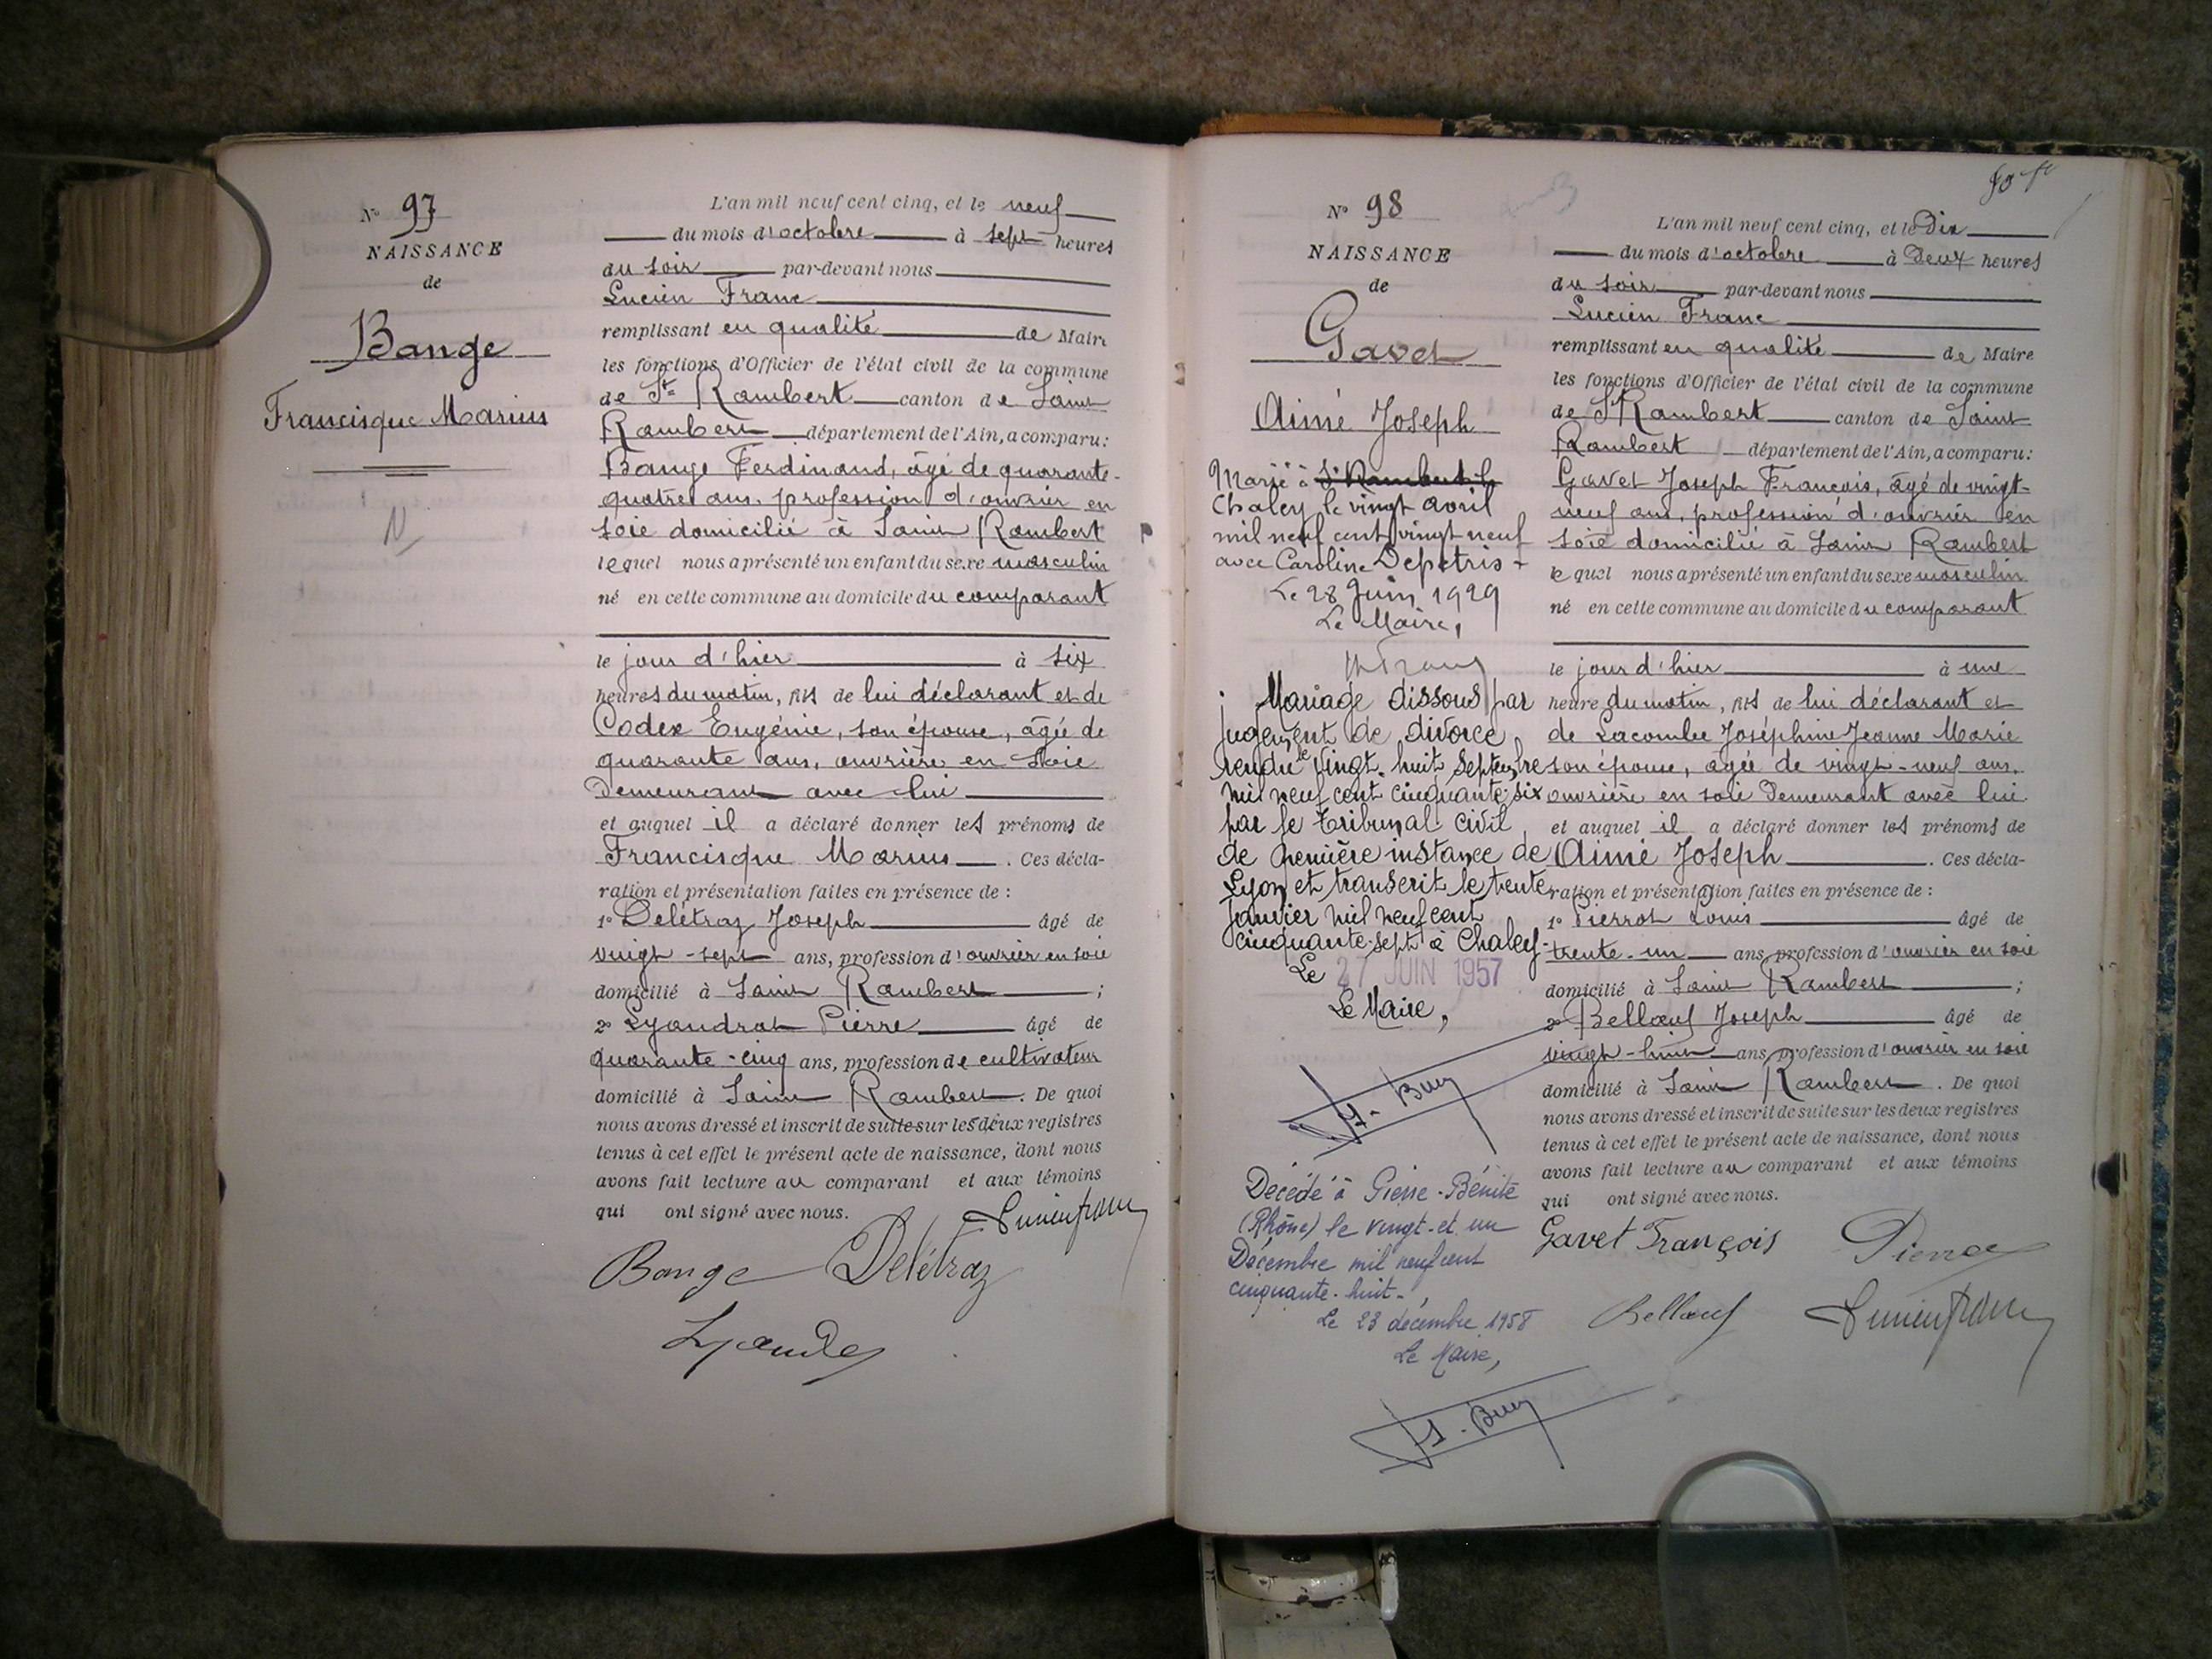 N° 97
NAISSANCE
de
Bange
Francisque Marius
N
L'an mil neuf cent cinq, et le neuf
du mois d'octobre à sept heures
du soir par-devant nous
Lucien Franc
remplissant en qualité de Maire
les fonctions d'Officier de l'état civil de la commune
de St Rambert canton de Saint
Rambert département de l'Ain, a comparu:
Bange Ferdinand, âgé de quarante-
quatre ans, profession d'ouvrier en
soie domicilié à Saint Rambert
lequel nous a présenté un enfant du sexe masculin
né en cette commune au domicile du comparant
le jour d'hier à six
heures du matin, fils de lui déclarant et de
Codex Eugénie, son épouse, âgée de
quarante ans, ouvrière en soie
Demeurant avec lui
et auquel il a déclaré donner les prénoms de
Francisque Marius. Ces décla-
ration et présentation faites en présence de :
1° Delétraz Joseph âgé de
vingt-sept ans, profession d'ouvrier en soie
domicilié à Saint Rambert ;
2° Lyaudrat Pierre âgé de
quarante-cinq ans, profession de cultivateur
domicilié à Saint Rambert. De quoi
nous avons dressé et inscrit de suite sur les deux registres
tenus à cet effet le présent acte de naissance, dont nous
avons fait lecture au comparant et aux témoins
qui ont signé avec nous.
Lucien Franc
Bange Delétraz
N° 98
NAISSANCE
de
Gavet
Aimé Joseph
Marié à St Rambert le
Chaley le vingt avril
mil neuf cent vingt neuf
avec Caroline Depetris -
Le 28 Juin 1929
Le Maire,
Mariage dissous par
jugement de divorce
rendu le vingt-huit Septembre
mil neuf cent cinquante-six
par le Tribunal civil
de première instance de
Lyon et transcrit le trente
janvier mil neuf cent
cinquante-sept à Chaley-
Le 27 JUIN 1957
Le Maire,
Décédé à Pierre-Bénite
(Rhône) le vingt-et un
Décembre mil neuf cent
cinquante-huit-
Le 23 décembre 1958
Le Maire,
L'an mil neuf cent cinq, et le Dix
du mois d'octobre à Deux heures
du soir par-devant nous
Lucien Franc
remplissant en qualité de Maire
les fonctions d'Officier de l'état civil de la commune
de St Rambert canton de Saint
Rambert département de l'Ain, a comparu:
Gavet Joseph François, âgé de vingt-
neuf ans, profession d'ouvrier en
soie domicilié à Saint Rambert
lequel nous a présenté un enfant du sexe masculin
né en cette commune au domicile du comparant
le jour d'hier à une
heure du matin, fils de lui déclarant et
de Lacombe Joséphine Jeanne Marie
son épouse, âgée de vingt-neuf ans,
ouvrière en soie Demeurant avec lui
et auquel il a déclaré donner les prénoms de
Aimé Joseph. Ces décla-
ration et présentation faites en présence de :
1° Pierrot Louis âgé de
trente-un ans, profession d'ouvrier en soie
domicilié à Saint Rambert ;
2° Bellœuf Joseph âgé de
vingt-huit ans, profession d'ouvrier en soie
domicilié à Saint Rambert. De quoi
nous avons dressé et inscrit de suite sur les deux registres
tenus à cet effet le présent acte de naissance, dont nous
avons fait lecture au comparant et aux témoins
qui ont signé avec nous.
Gavet François
Bellœuf Lucien Franc